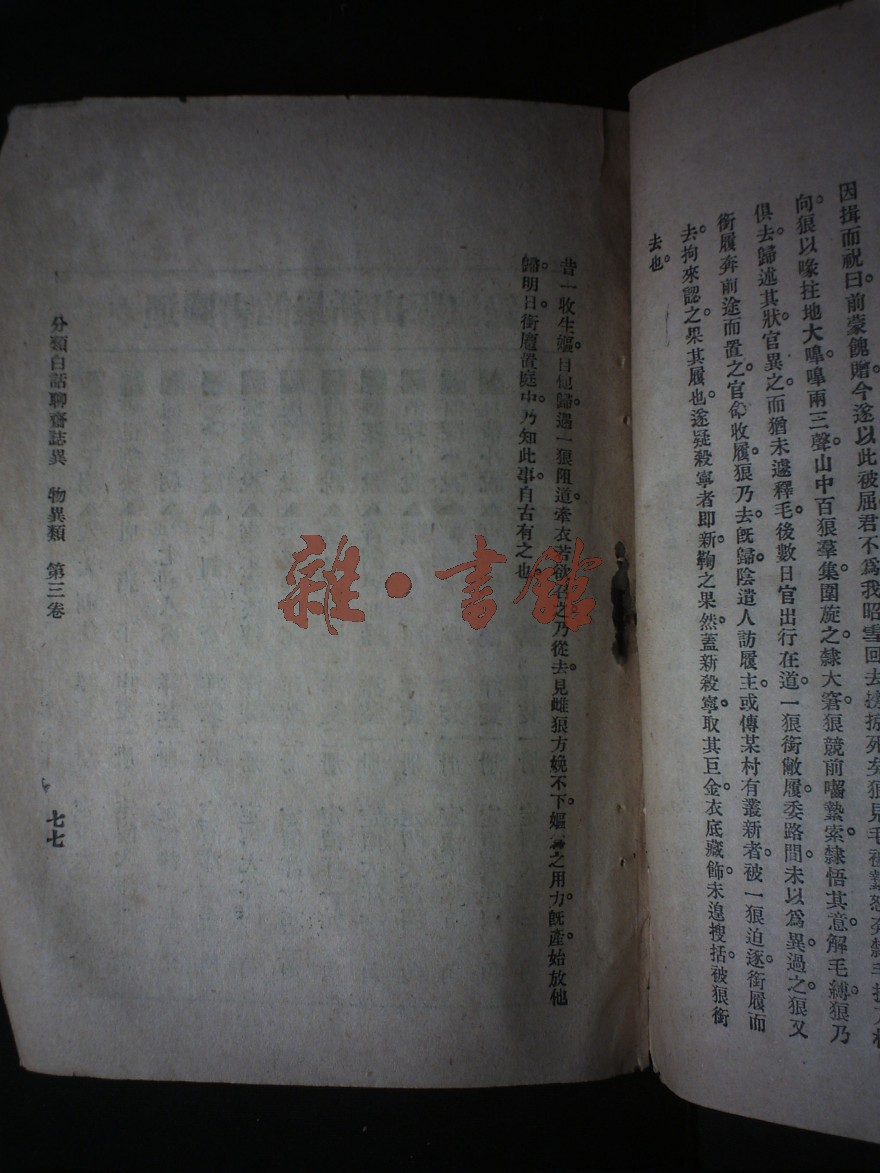 因揖而祝曰前蒙餽贈今遂以此被屈君不爲我昭雪回去搒掠死矣狼見毛被縶怒奔隸
向狼以喙拄地大嘷嘷兩三聲山中百狼羣集圍旋之隸大窘狼競前囓縶索隸悟其意解毛縛狼乃
俱去歸述其狀官異之而猶未遽釋毛後數日官出行在道一狼銜敝履委路間未以爲異過之狼又
銜履奔前途而置之官命收履狼乃去旣歸陰遣人訪履主或傳某村有叢新者被一狼迫逐銜履而
去拘來認之果其履也遂疑殺寧者卽新鞠之果然蓋新殺寧取其巨金衣底藏飾未遑搜括被狼銜
去也
昔一收生嫗自他歸遇一狼阻道牽衣若欲召之乃從去見雌狼方娩不下嫗爲之用力旣產始放他
歸明日銜鹿置庭中乃知此事自古有之也
分類白話聊齋誌異 物異類 第三卷
七七
雜·書館